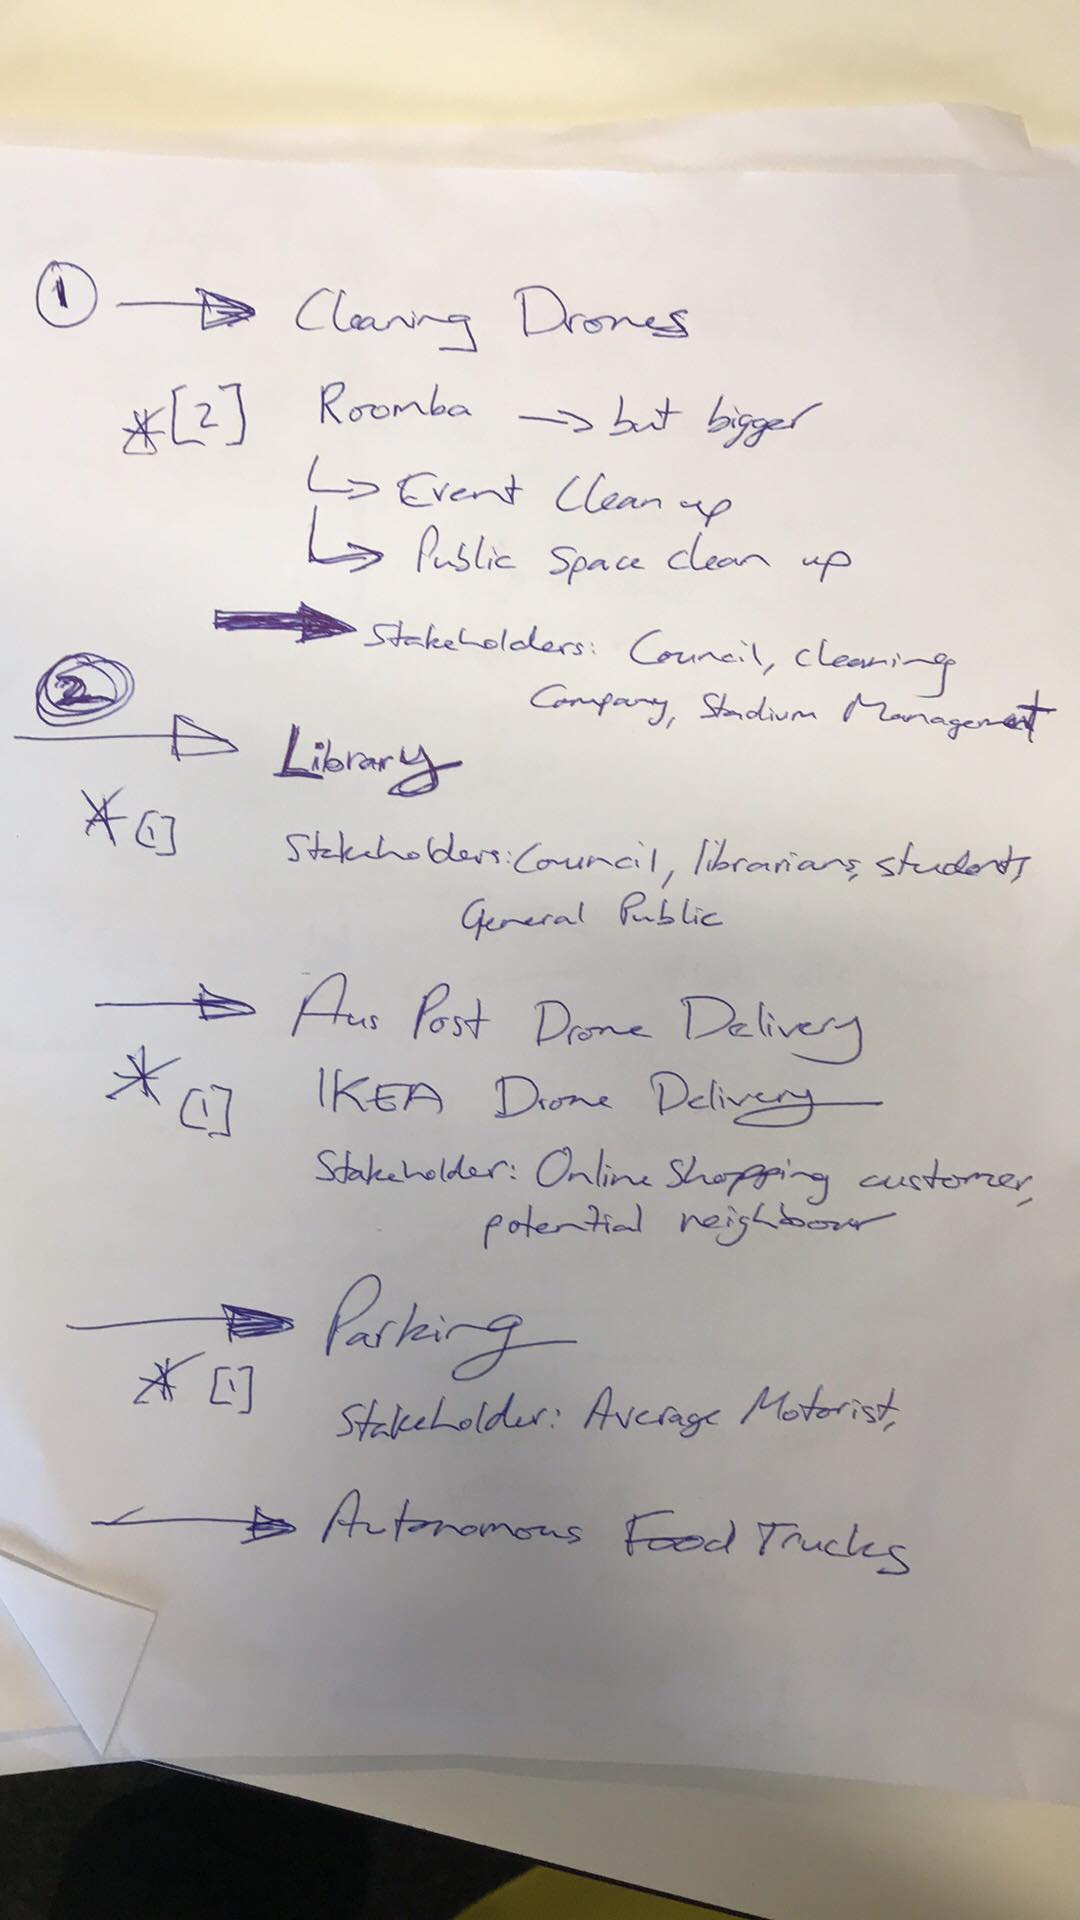 1 → Cleaning Drones
*[2] Roomba → but bigger
↳ Event Clean up
↳ Public Space clean up
→ Stakeholders: Council, cleaning
Company, Stadium Management
2
→ Library
*[1]
Stakeholders: Council, librarians, students,
General Public
→ Aus Post Drone Delivery
*[1] IKEA Drone Delivery
Stakeholder: Online Shopping customer,
potential neighbour
→ Parking
*[1]
Stakeholder: Average Motorist,
→ Autonomous Food Trucks